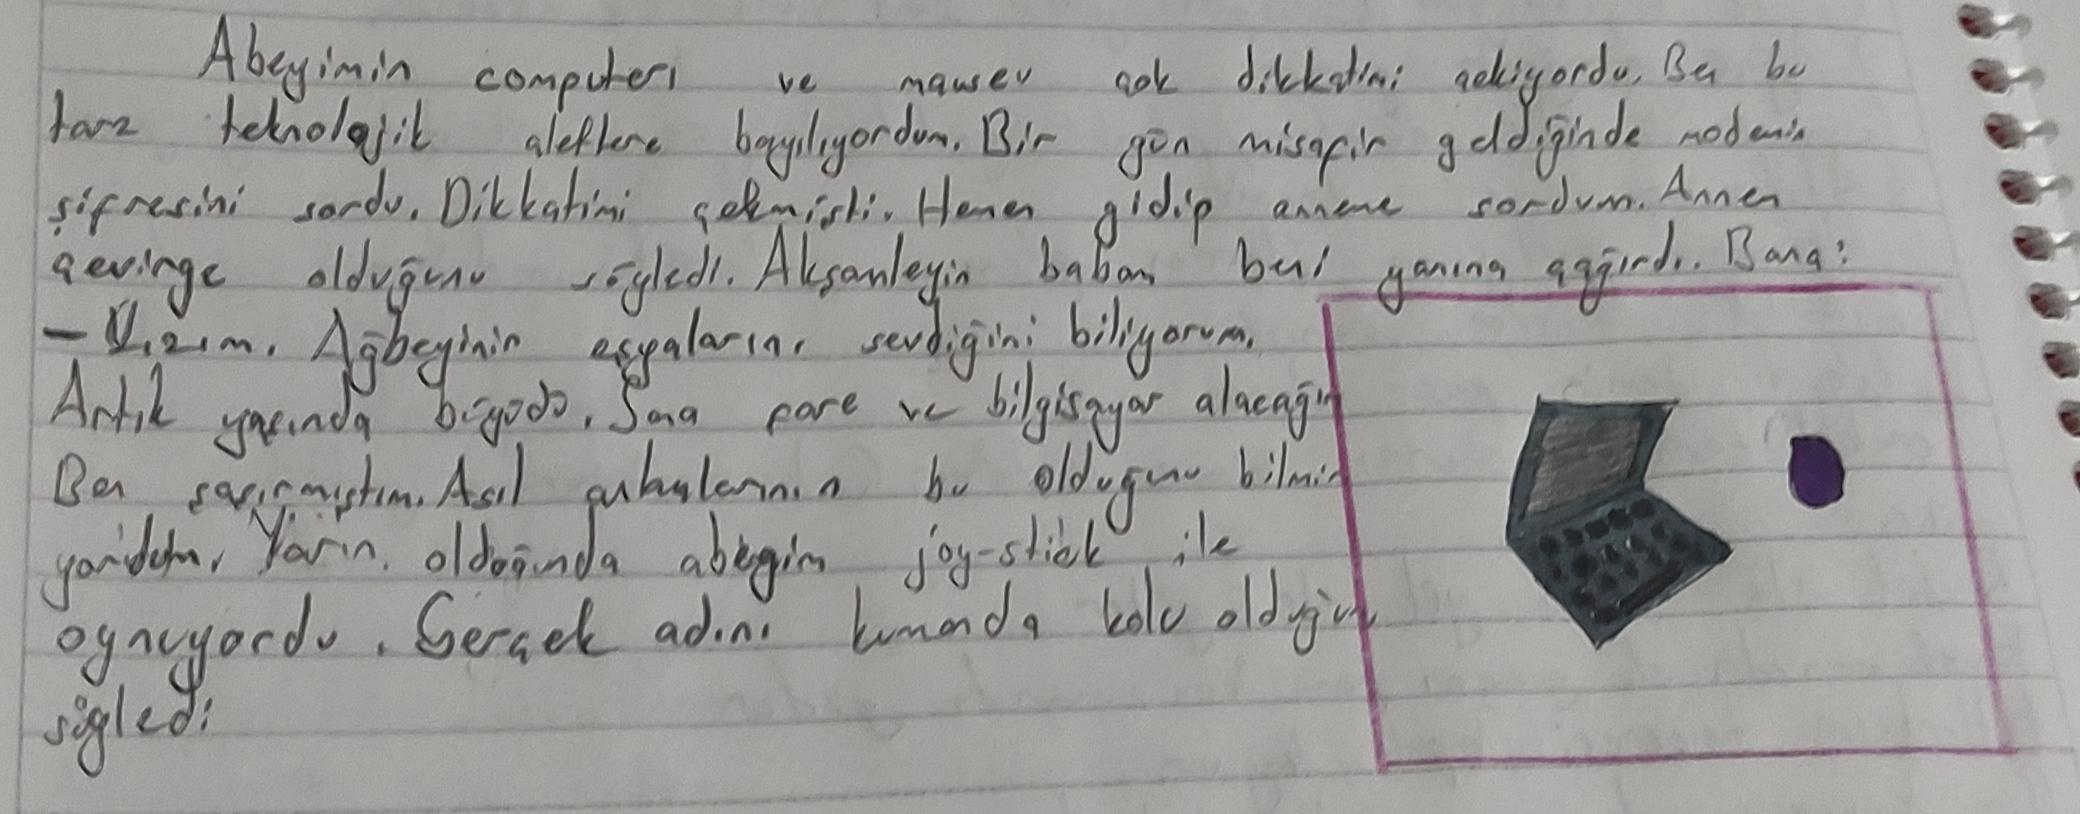 Abeyimin computeri ve mauseu çok dikkatimi çekiyordu. Ben bu
tarz teknolojik aletlere bayılıyordum. Bir gün misafir geldiğinde modemin
şifresini sordu. Dikkatimi çekmişti. Hemen gidip anneme sordum. Annem
çevirge olduğunu söyledi. Akşamleyin babam beni yanına çağırdı. Bana:
- Kızım. Ağbeyinin eşyalarını sevdiğini biliyorum.
Artık yaşında büyüdü. Sana fare ve bilgisayar alacağım
Ben şaşırmıştım. Asıl bu olduğunu bilmi
yordum. Yarın olduğunda abeyim joy-stick ile
oynuyordu. Gerçek adını kumanda kolu olduğun
söyledi